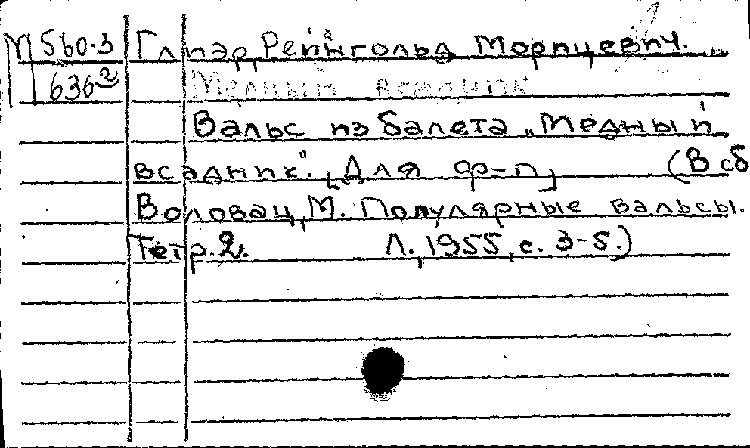 М 560.3 Глиэр, Рейнгольд Морицевич.
636² Медный всадник
Вальс из балета „Медный
всадник". [Для ф-п] (В сб
Воловац, М. Популярные вальсы.
Тетр. 2. Л., 1955, с. 3-5.)